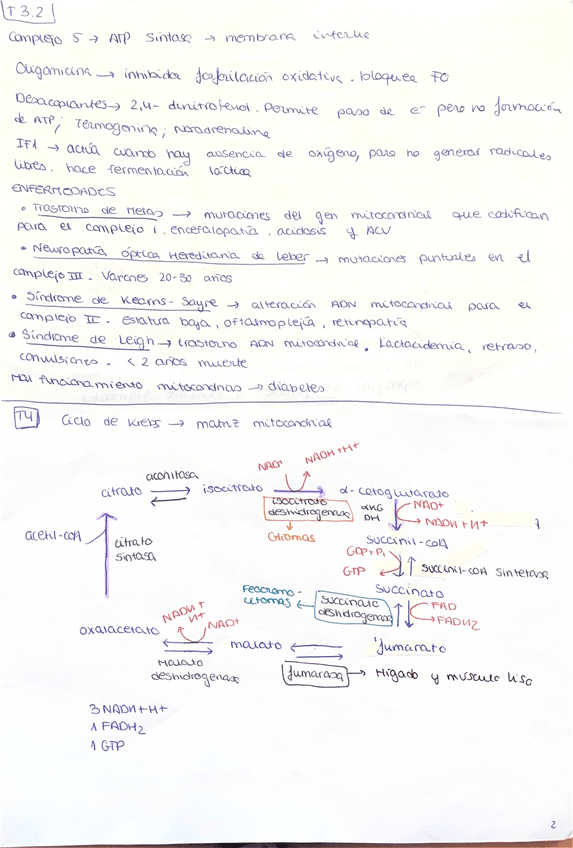 T 3.2
Complejo 5 → ATP Sintasa → membrana interna
Oligomicina → inhibidor fosforilación oxidativa. bloquea F0
Desacoplantes → 2,4-dinitrofenol. Permite paso de e- pero no formación
de ATP; Termogenina; Noradrenalina
IF1 → actúa cuando hay ausencia de oxígeno, para no generar radicales
libres. hace fermentación láctica
ENFERMEDADES
• Trastorno de Melas → mutaciones del gen mitocondrial que codifican
para el complejo I, encefalopatía, acidosis y ACV
• Neuropatía óptica Hereditaria de Leber → mutaciones puntuales en el
complejo III. Varones 20-30 años
• Síndrome de Kearns-Sayre → alteración ADN mitocondrial para el
complejo II. estatura baja, oftalmoplejia, retinopatía
• Síndrome de Leigh → trastorno ADN mitocondrial. Lactacidemia, retraso,
convulsiones. < 2 años muerte
Mal funcionamiento mitocondrias → diabetes
T4 Ciclo de Krebs → matriz mitocondrial
NAD+ NADH+H+
aconitasa
citrato isocitrato α-cetoglutarato
isocitrato
deshidrogenasa
αKG
DH
NAD+
NADH+H+
Gliomas
acetil-coA
citrato
sintasa
succinil-coA
GDP+Pi
GTP
succinil-coA sintetasa
succinato
Feocromo-
citomas
succinato
deshidrogenasa
FAD
FADH2
NADH+
H+
NAD+
oxalacetato malato fumarato
Malato
deshidrogenasa
fumarasa → Hígado y musculo liso
3 NADH+H+
1 FADH2
1 GTP
2